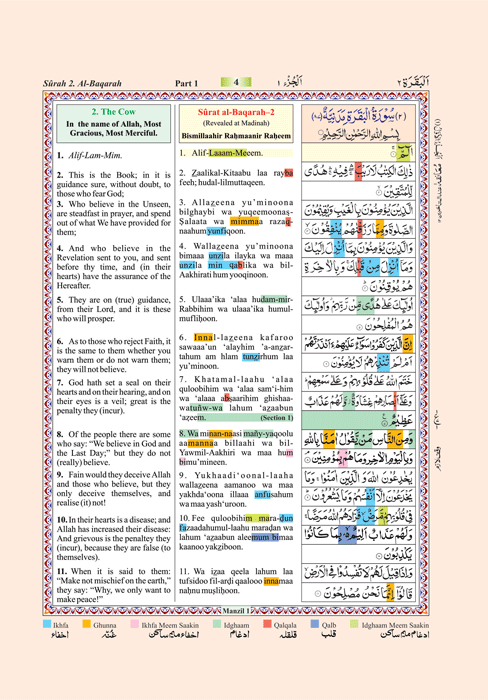 Sûrah 2. Al-Baqarah
Part 1
4
اَلْجُزْءُ ١
اَلْبَقَرَة ٢
2. The Cow
In the name of Allah, Most
Gracious, Most Merciful.
1. Alif-Lam-Mim.
2. This is the Book; in it is
guidance sure, without doubt, to
those who fear God;
3. Who believe in the Unseen,
are steadfast in prayer, and spend
out of what We have provided for
them;
4. And who believe in the
Revelation sent to you, and sent
before thy time, and (in their
hearts) have the assurance of the
Hereafter.
5. They are on (true) guidance,
from their Lord, and it is these
who will prosper.
6. As to those who reject Faith, it
is the same to them whether you
warn them or do not warn them;
they will not believe.
7. God hath set a seal on their
hearts and on their hearing, and on
their eyes is a veil; great is the
penalty they (incur).
8. Of the people there are some
who say: “We believe in God and
the Last Day;” but they do not
(really) believe.
9. Fain would they deceive Allah
and those who believe, but they
only deceive themselves, and
realise (it) not!
10. In their hearts is a disease; and
Allah has increased their disease:
And grievous is the penaltey they
(incur), because are false (to
themselves).
11. When it is said to them:
“Make not mischief on the earth,”
they say: “Why, we only want to
make peace!”
Sûrat al-Baqarah–2
(Revealed at Madinah)
Bismillaahir Raḥmaanir Raḥeem
1. Alif-Laaam-Meeem.
2. Zaalikal-Kitaabu laa rayba
feeh; hudal-lilmuttaqeen.
3. Allazeena yu’minoona
bilghaybi wa yuqeemoonaṣ-
Ṣalaata wa mimmaa razaq-
naahum yunfiqoon.
4. Wallazeena yu’minoona
bimaaa unzila ilayka wa maaa
unzila min qablika wa bil-
Aakhirati hum yooqinoon.
5. Ulaaa’ika ‘alaa hudam-mir-
Rabbihim wa ulaaa’ika humul-
mufliḥoon.
6. Innal-lazeena kafaroo
sawaaa’un ‘alayhim ’a-anzar-
tahum am lham tunzirhum laa
yu’minoon.
7. Khatamal-laahu ‘alaa
quloobihim wa ‘alaa sam‘i-him
wa ‘alaaa abṣaarihim ghishaa-
watuñw-wa lahum ‘azaabun
‘aẓeem.
(Section 1)
8. Wa minan-naasi mañy-yaqoolu
aamannaa billaahi wa bil-
Yawmil-Aakhiri wa maa hum
bimu’mineen.
9. Yukhaadi‘oonal-laaha
wallazeena aamanoo wa maa
yakhda‘oona illaaa anfusahum
wa maa yash‘uroon.
10. Fee quloobihim maraḍun
fazaadahumul-laahu maraḍan wa
lahum ‘azaabun aleemum bimaa
kaanoo yakziboon.
11. Wa izaa qeela lahum laa
tufsidoo fil-arḍi qaalooo innamaa
naḥnu muṣliḥoon.
(٢) سُوْرَةُ الْبَقَرَةِ مَدَنِيَّةٌ (٨٧)
بِسْمِ اللهِ الرَّحْمٰنِ الرَّحِيْمِ
الٓمّٓ
ذٰلِكَ الْكِتٰبُ لَا رَيْبَ فِيْهِ هُدًى
لِّلْمُتَّقِيْنَ
الَّذِيْنَ يُؤْمِنُوْنَ بِالْغَيْبِ وَيُقِيْمُوْنَ
الصَّلٰوةَ وَمِمَّا رَزَقْنٰهُمْ يُنْفِقُوْنَ
وَالَّذِيْنَ يُؤْمِنُوْنَ بِمَآ اُنْزِلَ اِلَيْكَ
وَمَآ اُنْزِلَ مِنْ قَبْلِكَ وَبِالْاٰخِرَةِ
هُمْ يُوْقِنُوْنَ
اُولٰٓئِكَ عَلٰى هُدًى مِّنْ رَّبِّهِمْ وَاُولٰٓئِكَ
هُمُ الْمُفْلِحُوْنَ
اِنَّ الَّذِيْنَ كَفَرُوْا سَوَآءٌ عَلَيْهِمْ ءَاَنْذَرْتَهُمْ
اَمْ لَمْ تُنْذِرْهُمْ لَا يُؤْمِنُوْنَ
خَتَمَ اللهُ عَلٰى قُلُوْبِهِمْ وَعَلٰى سَمْعِهِمْ
وَعَلٰٓى اَبْصَارِهِمْ غِشَاوَةٌ وَّلَهُمْ عَذَابٌ
عَظِيْمٌ
وَمِنَ النَّاسِ مَنْ يَّقُوْلُ اٰمَنَّا بِاللهِ
وَبِالْيَوْمِ الْاٰخِرِ وَمَا هُمْ بِمُؤْمِنِيْنَ
يُخٰدِعُوْنَ اللهَ وَالَّذِيْنَ اٰمَنُوْا وَمَا
يَخْدَعُوْنَ اِلَّآ اَنْفُسَهُمْ وَمَا يَشْعُرُوْنَ
فِيْ قُلُوْبِهِمْ مَّرَضٌ فَزَادَهُمُ اللهُ مَرَضًا
وَلَهُمْ عَذَابٌ اَلِيْمٌ بِمَا كَانُوْا
يَكْذِبُوْنَ
وَاِذَا قِيْلَ لَهُمْ لَا تُفْسِدُوْا فِى الْاَرْضِ
قَالُوْٓا اِنَّمَا نَحْنُ مُصْلِحُوْنَ
Manzil 1
Ikhfa
Ghunna
Ikhfa Meem Saakin
Idghaam
Qalqala
Qalb
Idghaam Meem Saakin
اخفاء
غُنّه
اخفاء میم ساکن
ادغام
قلقله
قلب
ادغام میم ساکن